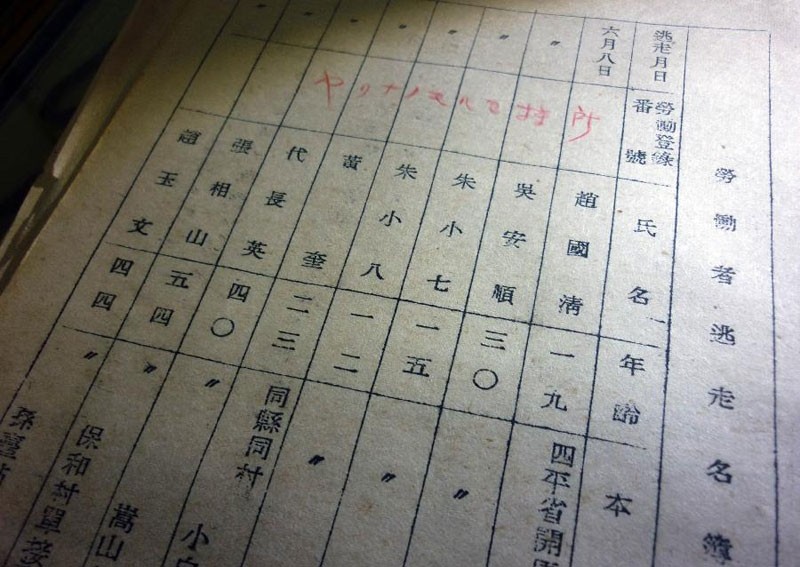 勞働者逃走名簿
逃走月日 勞働登錄番號 氏名 年齡 本
六月八日 趙國淸 一九 四平省開
〃 吳安順 三〇 〃
〃 朱小七 一五 〃
〃 朱小八 一二 〃
〃 黃奎 二三 同縣同村
〃 代長英 四〇 〃 小
〃 張相山 五四 〃 嵩山
趙玉文 四四 〃 保和村單接
孫臺